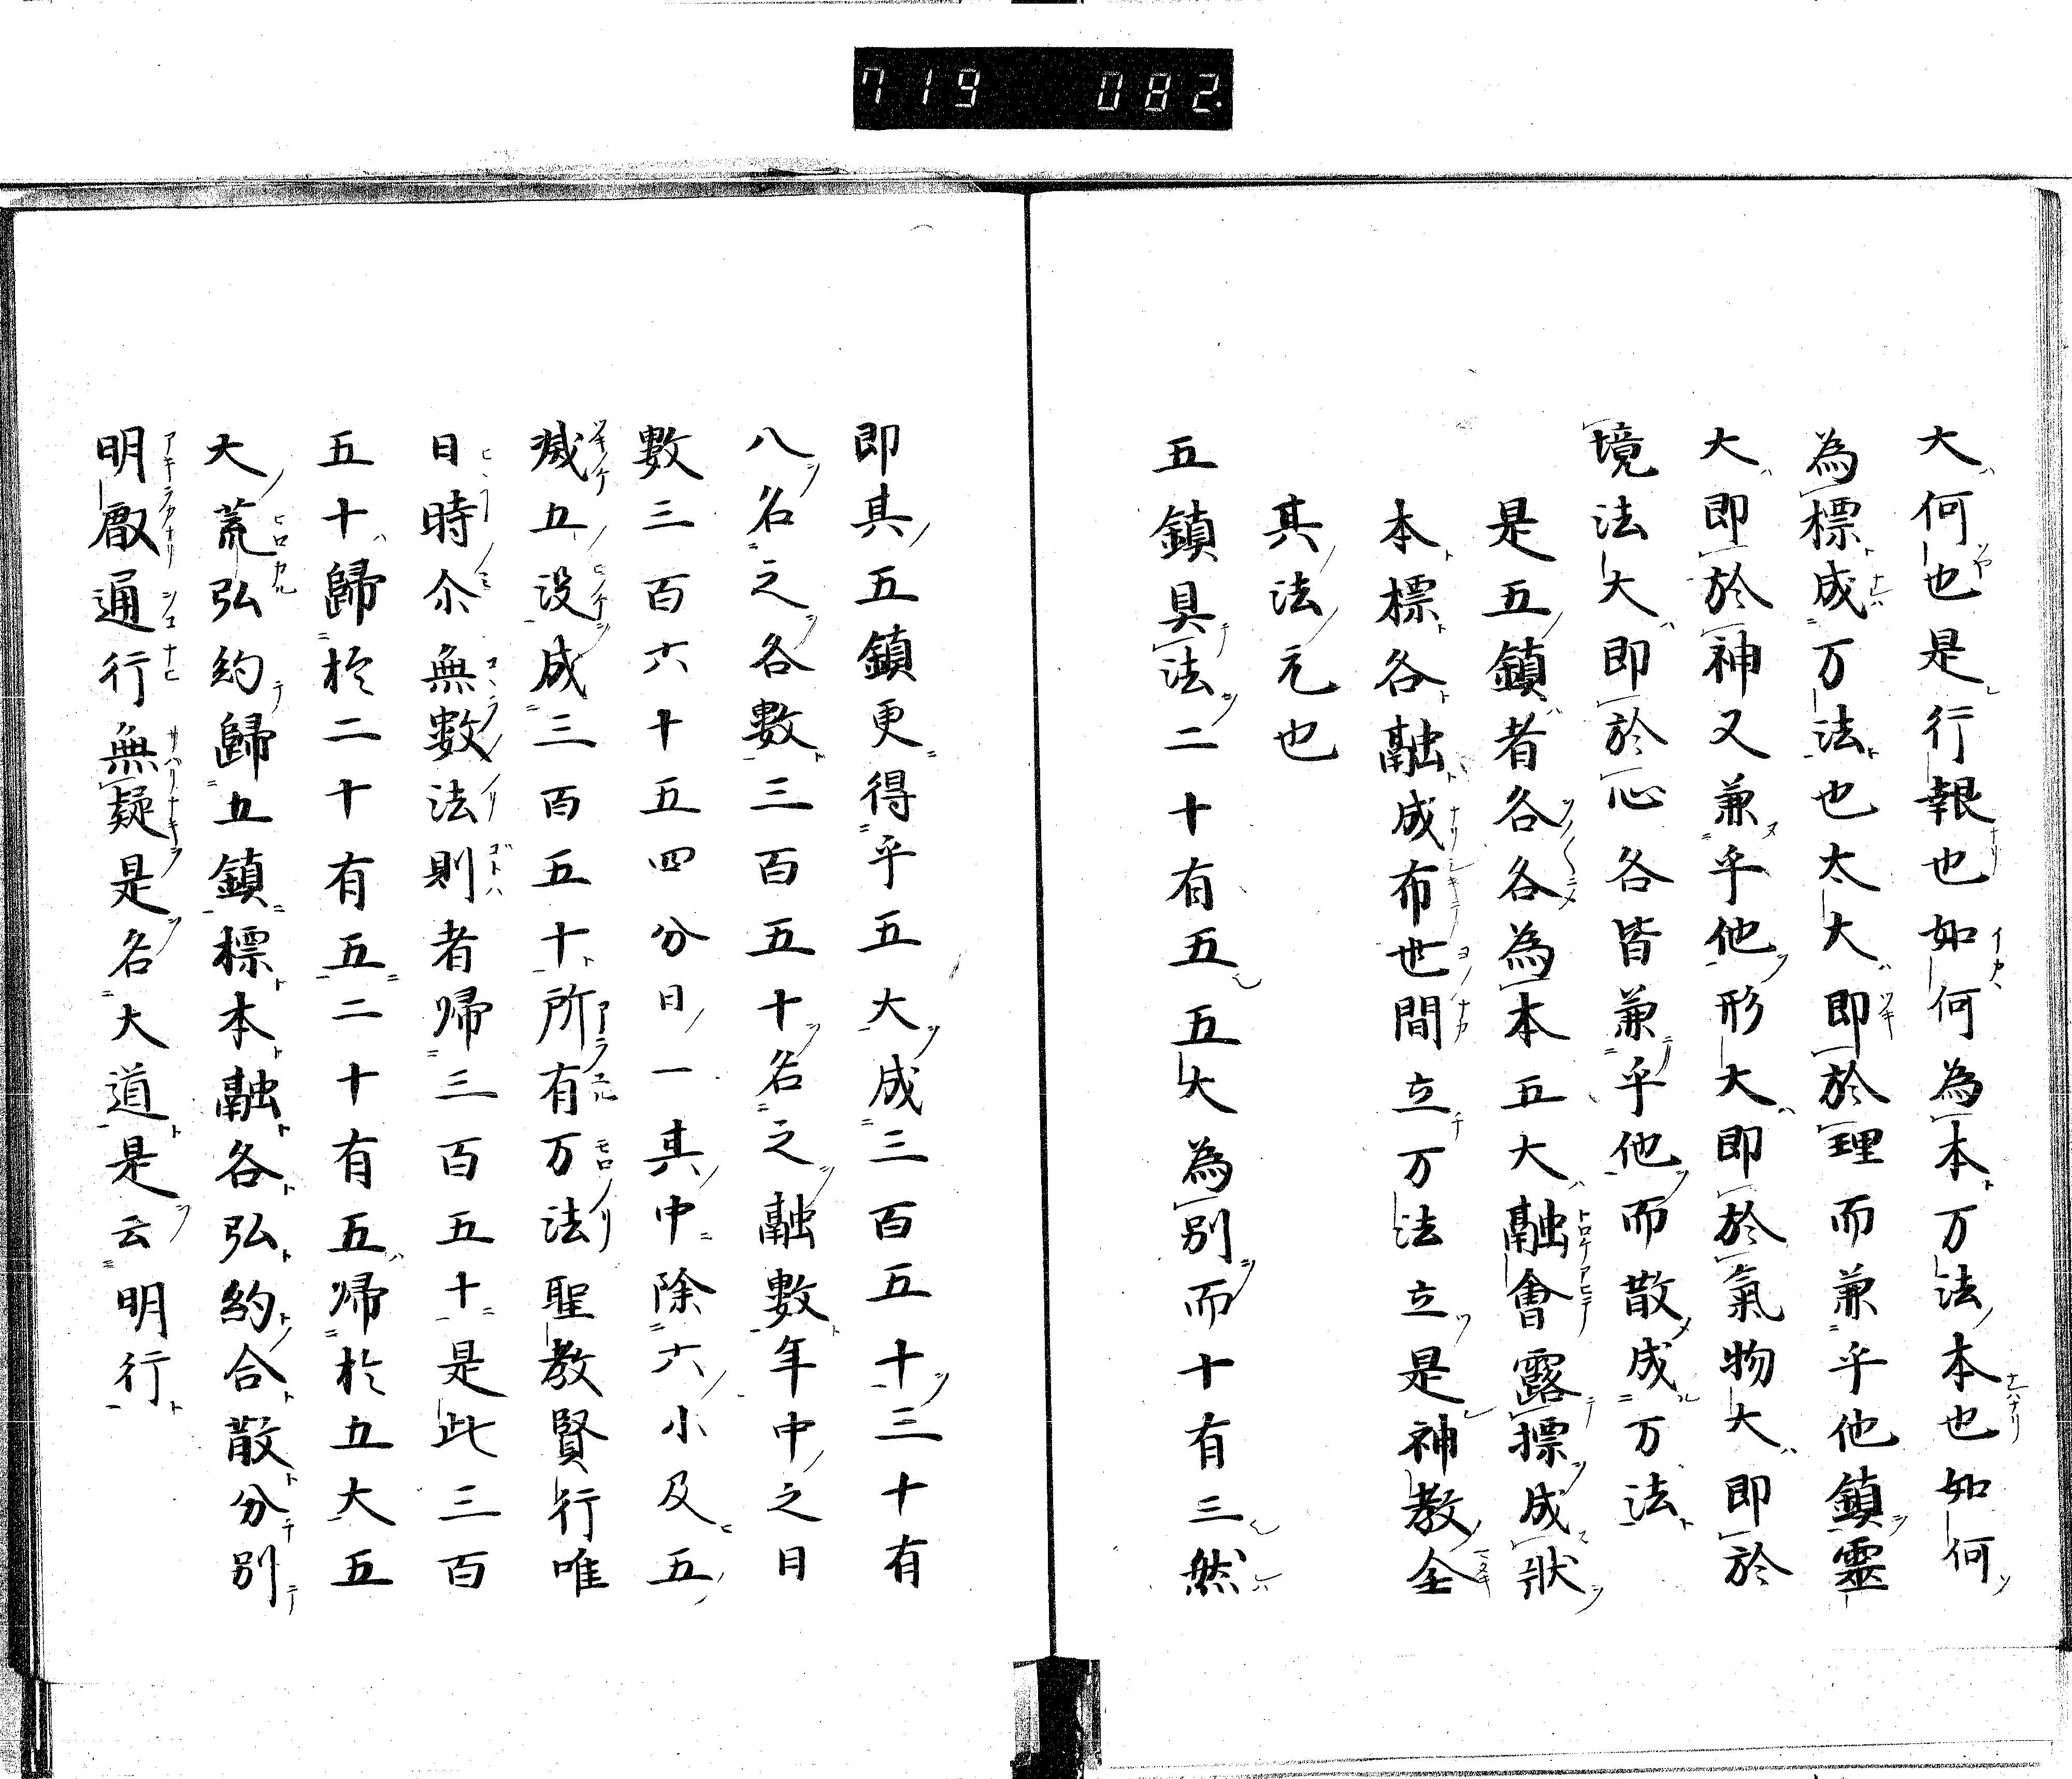 719 082
大何也是行報也如何為本万法本也如何
為標成万法也太大即於理而兼乎他鎮靈
大即於神又兼乎他形大即於氣物大即於
境法大即於心各皆兼乎他而散成万法
是五鎮者各各為本五大融會露標成狀
本標各融成布世間立万法立是神教全
其法元也
五鎮具法二十有五五大為別而十有三然
即其五鎮更得乎五大成三百五十三十有
八名之各數三百五十名之融數年中之日
數三百六十五四分日一其中除六小及五
減五没成三百五十所有万法聖教賢行唯
日時尒無數法則者帰三百五十是此三百
五十歸於二十有五二十有五帰於五大五
大荒弘約歸五鎮標本融各弘約合散分別
明㕞通行無疑是名大道是云明行